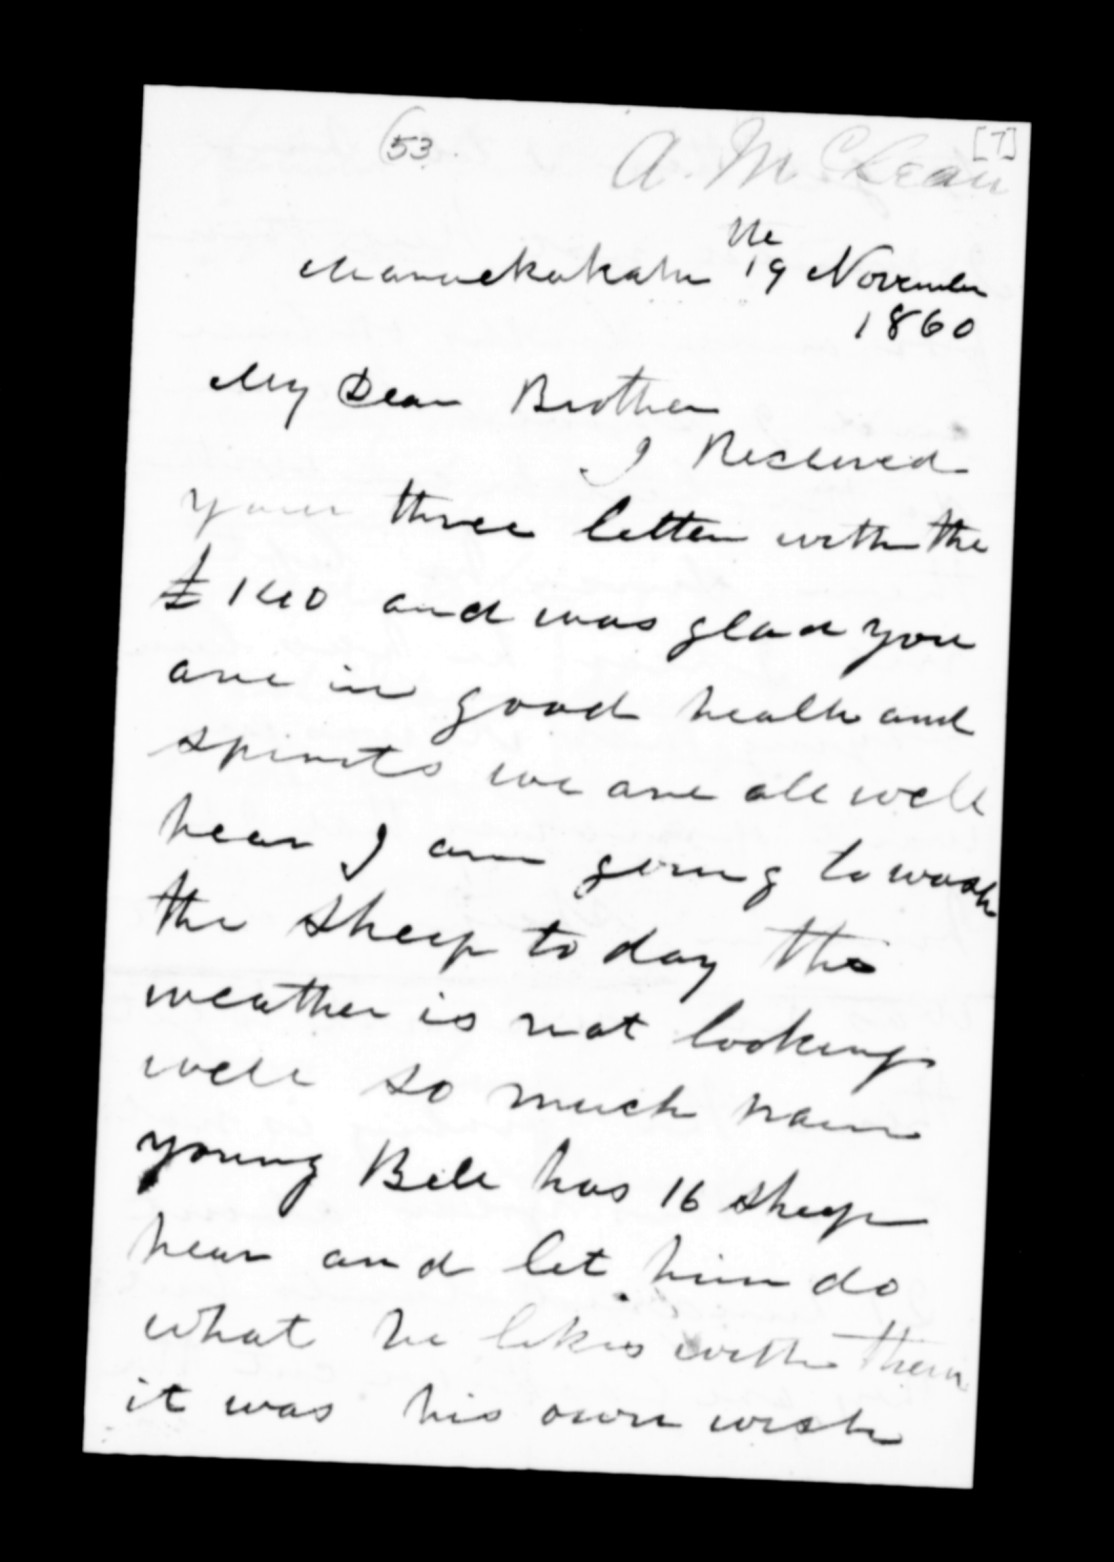 53
[7]
A. McLean
the
19 November
1860
My Dear Brother
I Received
your three letter with the
£140 and was glad you
are in good health and
spirits we are all well
hear I am going to wash
the sheep to day the
weather is not looking
well so much rain
young Bell has 16 sheep
hear and let him do
what he likes with them
it was his own wish